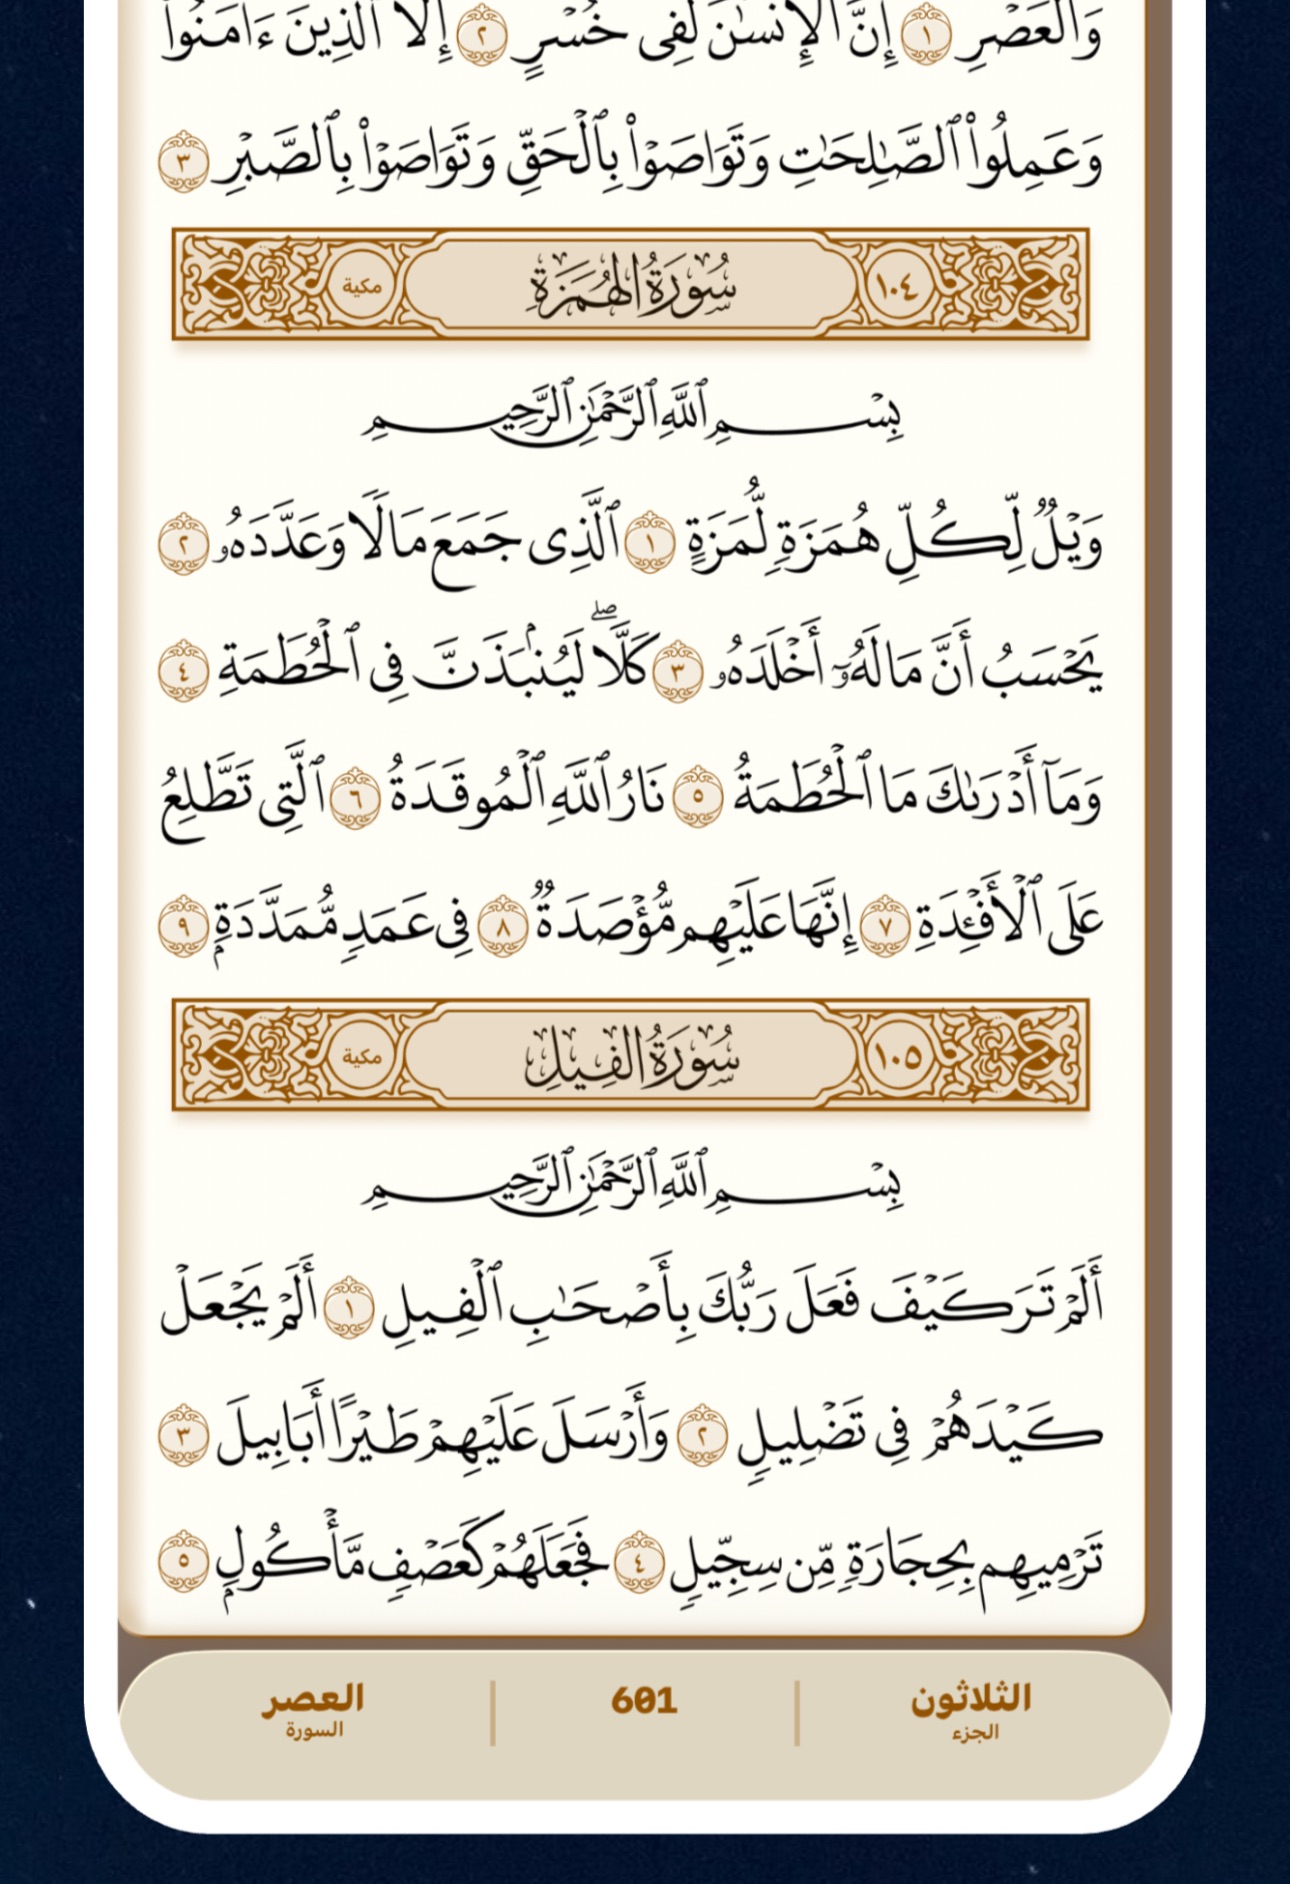 وَٱلْعَصْرِ ١ إِنَّ ٱلْإِنسَٰنَ لَفِى خُسْرٍ ٢ إِلَّا ٱلَّذِينَ ءَامَنُوا۟
وَعَمِلُوا۟ ٱلصَّٰلِحَٰتِ وَتَوَاصَوْا۟ بِٱلْحَقِّ وَتَوَاصَوْا۟ بِٱلصَّبْرِ ٣
١٠٤ سُورَةُ الهُمَزَةِ مكية
بِسْمِ ٱللَّهِ ٱلرَّحْمَٰنِ ٱلرَّحِيمِ
وَيْلٌ لِّكُلِّ هُمَزَةٍ لُّمَزَةٍ ١ ٱلَّذِى جَمَعَ مَالًا وَعَدَّدَهُۥ ٢
يَحْسَبُ أَنَّ مَالَهُۥٓ أَخْلَدَهُۥ ٣ كَلَّاۖ لَيُنۢبَذَنَّ فِى ٱلْحُطَمَةِ ٤
وَمَآ أَدْرَىٰكَ مَا ٱلْحُطَمَةُ ٥ نَارُ ٱللَّهِ ٱلْمُوقَدَةُ ٦ ٱلَّتِى تَطَّلِعُ
عَلَى ٱلْأَفْـِٔدَةِ ٧ إِنَّهَا عَلَيْهِم مُّؤْصَدَةٌ ٨ فِى عَمَدٍ مُّمَدَّدَةٍۭ ٩
١٠٥ سُورَةُ الفِيلِ مكية
بِسْمِ ٱللَّهِ ٱلرَّحْمَٰنِ ٱلرَّحِيمِ
أَلَمْ تَرَ كَيْفَ فَعَلَ رَبُّكَ بِأَصْحَٰبِ ٱلْفِيلِ ١ أَلَمْ يَجْعَلْ
كَيْدَهُمْ فِى تَضْلِيلٍ ٢ وَأَرْسَلَ عَلَيْهِمْ طَيْرًا أَبَابِيلَ ٣
تَرْمِيهِم بِحِجَارَةٍ مِّن سِجِّيلٍ ٤ فَجَعَلَهُمْ كَعَصْفٍ مَّأْكُولٍۭ ٥
الثلاثون 601 العصر
الجزء السورة